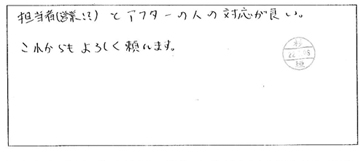 担当者(営業)とアフターの人の対応が良い。
これからもよろしく頼みます。